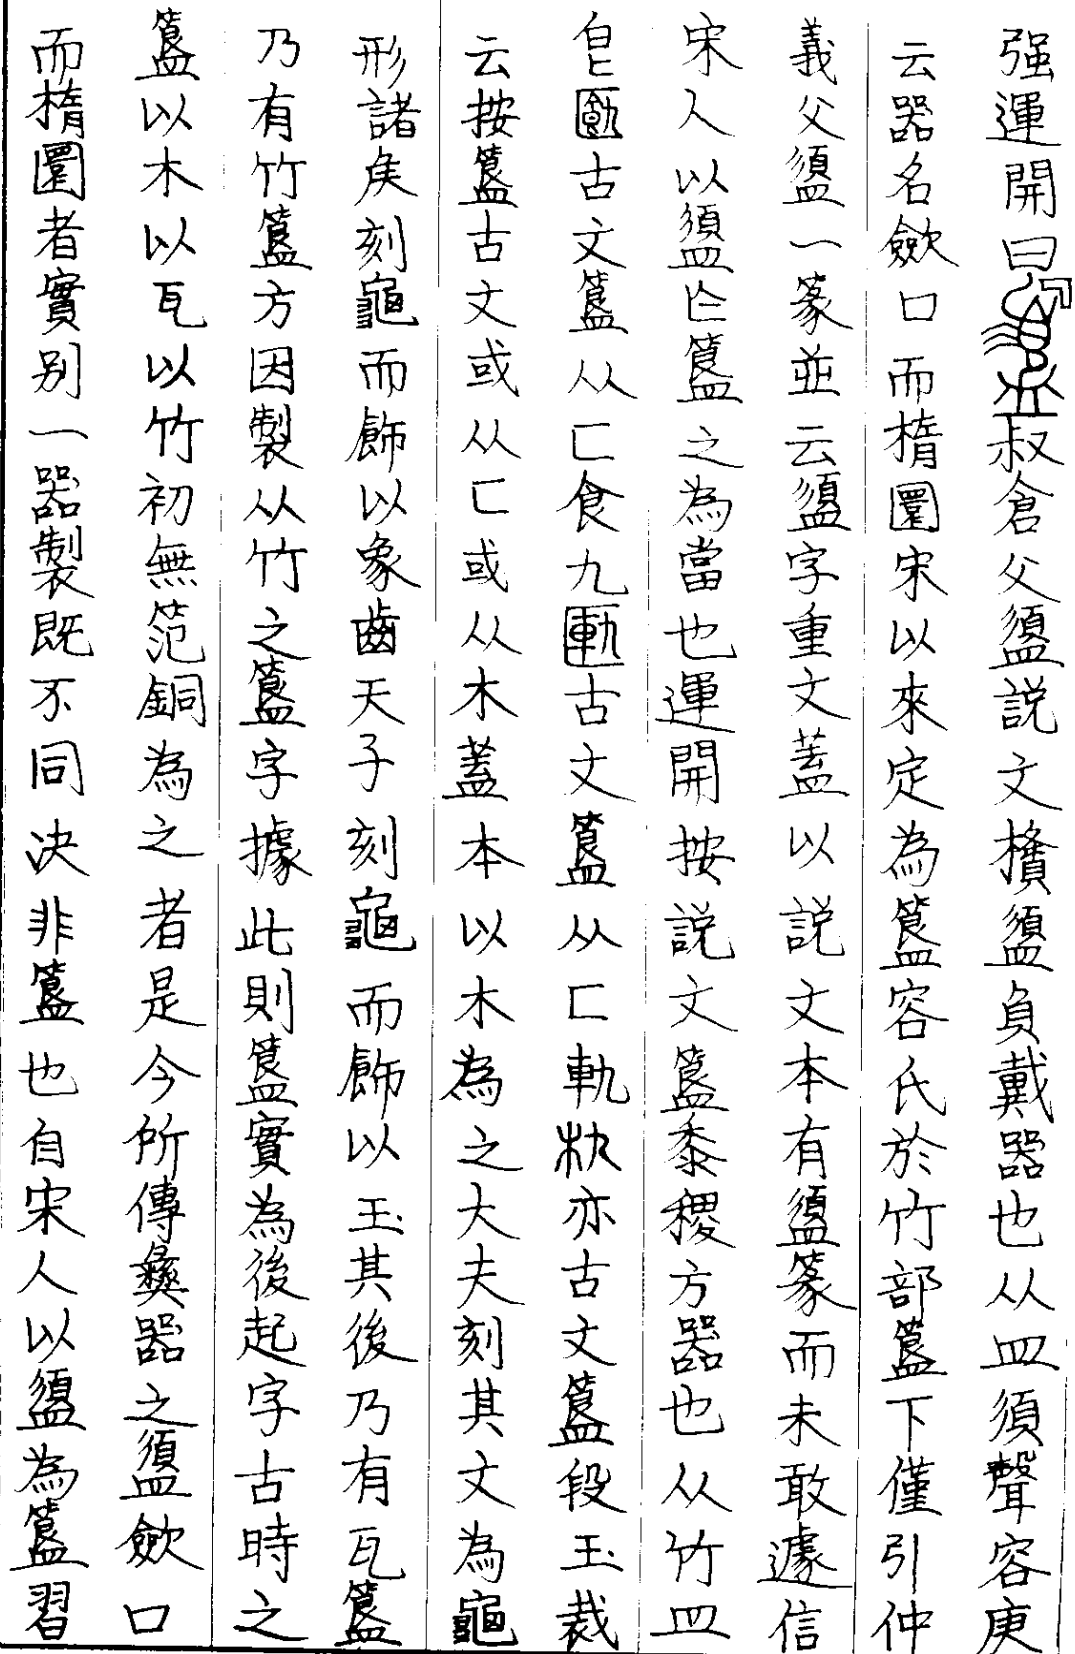 强運開曰叔倉父盨説文櫕盨負戴器也从皿須聲容庚
云器名歛口而楕圜宋以來定為簋容氏於竹部簋下僅引仲
義父盨一篆並云盨字重文蓋以説文本有盨篆而未敢遽信
宋人以盨亼簋之為當也運開按説文簋黍稷方器也从竹皿
皀匓古文簋从匚食九匭古文簋从匚軌朹亦古文簋段玉裁
云按簋古文或从匚或从木蓋本以木為之大夫刻其文為龜
形諸矦刻龜而飾以象齒天子刻龜而飾以玉其後乃有瓦簋
乃有竹簋方因製从竹之簋字據此則簋實為後起字古時之
簋以木以瓦以竹初無笵銅為之者是今所傳彝器之盨歛口
而楕圜者實别一器製既不同决非簋也自宋人以盨為簋習